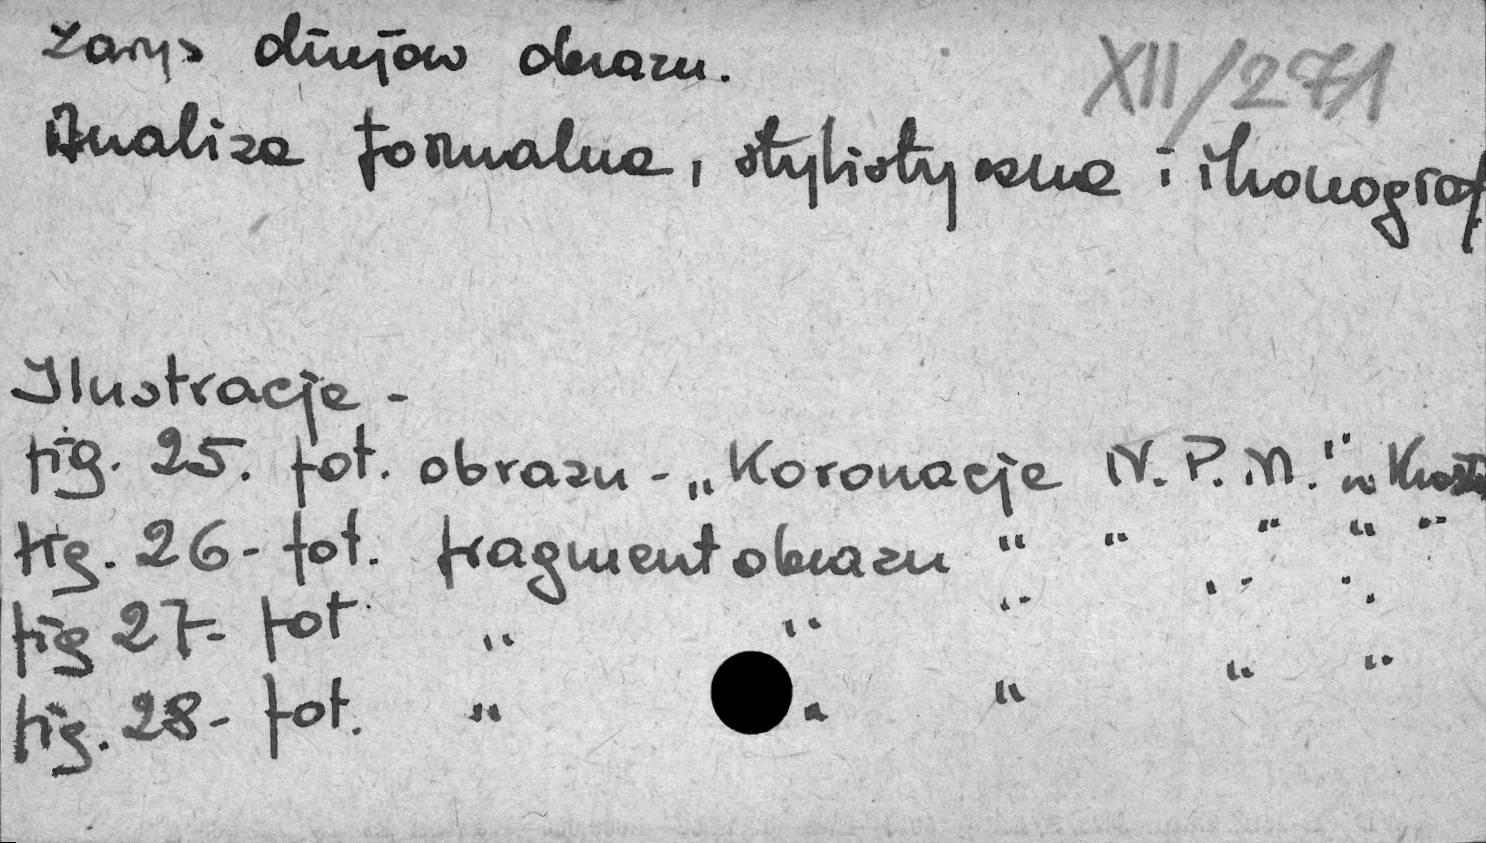 Zarys dziejów obrazu.
XII/271
Analiza formalna, stylistyczna i ikonograf
Ilustracje -
fig. 25. fot. obrazu - „Koronacje N.P.M." w
fig. 26 - fot. fragment obrazu " " " " "
fig 27 - fot " " " " "
fig. 28 - fot. " " " " "